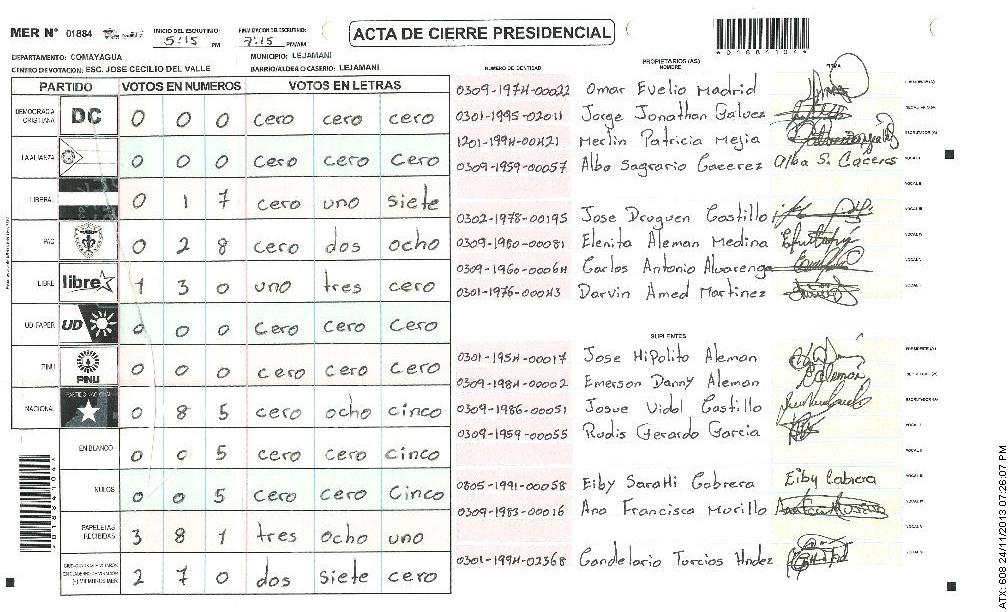 MER Nº 01884
INICIO DEL ESCRUTINIO:
5:15 PM
FINALIZACION DEL ESCRUTINIO:
7:15 PM/AM
ACTA DE CIERRE PRESIDENCIAL
DEPARTAMENTO: COMAYAGUA
MUNICIPIO: LEJAMANI
CENTRO DE VOTACION: ESC. JOSE CECILIO DEL VALLE
BARRIO/ALDEA O CASERIO: LEJAMANI
PARTIDO VOTOS EN NUMEROS VOTOS EN LETRAS
DEMOCRACIA CRISTIANA DC 0 0 0 cero cero cero
LA ALIANZA 0 0 0 cero cero cero
LIBERAL 0 1 7 cero uno siete
PAC 0 2 8 cero dos ocho
LIBRE libre 1 3 0 uno tres cero
UD-FAPER UD 0 0 0 cero cero cero
PINU PINU 0 0 0 cero cero cero
NACIONAL PARTIDO NACIONAL 0 8 5 cero ocho cinco
EN BLANCO 0 0 5 cero cero cinco
NULOS 0 0 5 cero cero cinco
PAPELETAS RECIBIDAS 3 8 1 tres ocho uno
2 7 0 dos siete cero
NUMERO DE IDENTIDAD
PROPIETARIOS (AS)
NOMBRE
FIRMA
0309-1974-00022 Omar Evelio Madrid
0301-1995-02011 Jorge Jonathan Galvez
1201-1994-00421 Merlin Patricia Mejia
0309-1959-00057 Alba Sagrario Cacerez Alba S. Caceres
0302-1978-00195 Jose Deuguen Castillo
0309-1980-00081 Elenita Aleman Medina
0309-1960-00064 Carlos Antonio Alvarenga
0301-1976-00043 Darvin Amed Martinez
SUPLENTES
0301-1954-00017 Jose Hipolito Aleman
0309-1984-00002 Emerson Danny Aleman
0309-1986-00051 Josue Vidal Castillo
0309-1959-00055 Rudis Gerardo Garcia
0805-1991-00058 Eiby Sarahi Cabrera Eiby Cabrera
0309-1983-00016 Ana Francisca Murillo
0301-1994-02368 Candelario Turcios Hndez
ATX: 608 24/11/2013 07:26:07 PM